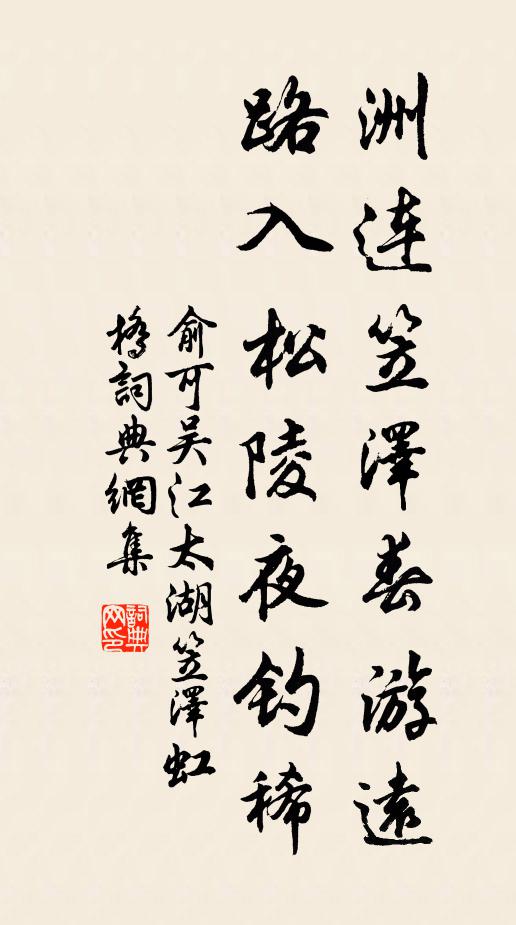 洲連笠澤春游遠
路入松陵夜釣稀
俞可吴江太湖笠澤虹
橋詞典網集
詞典
网印